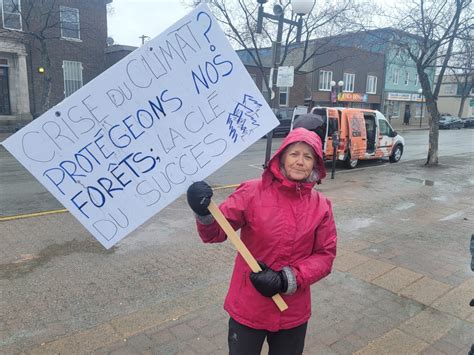 CRISE DU CLIMAT?
PROTÉGEONS NOS
FORÊTS; LA CLÉ
DU SUCCÈS